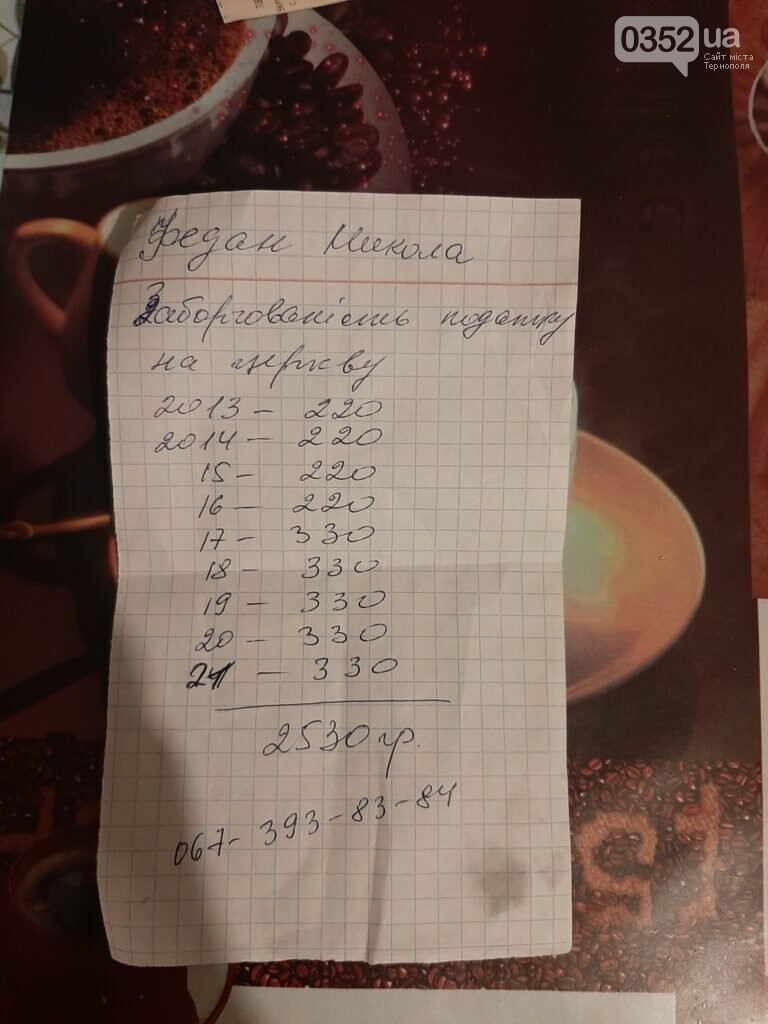 0352.ua
Сайт міста
Тернополя
Федан Микола
Заборгованість податку
на церкву
2013 - 220
2014 - 220
15 - 220
16 - 220
17 - 330
18 - 330
19 - 330
20 - 330
21 - 330
2530 гр.
067-393-83-84